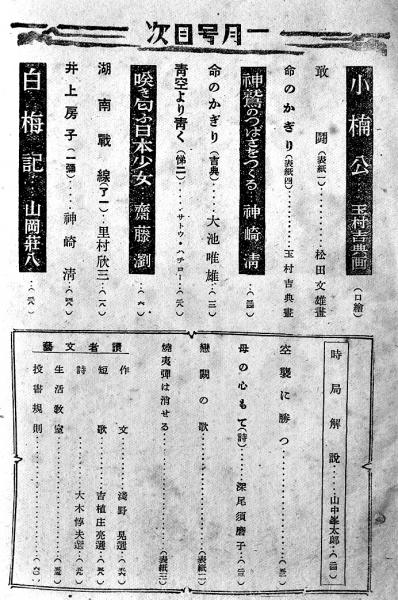 一月号目次
小楠公 玉村吉典画 (口繪)
敢闘 (表紙一) 松田文雄畫
命のかぎり (表紙四) 玉村吉典畫
神鷲のつばさをつくる 神崎清
命のかぎり (吉典) 大池唯雄
青空より青く (悌二) サトウ・ハチロー
咲き匂ふ日本少女 齋藤瀏
湖南戰線 (了一) 里村欣三
井上房子 (一彌) 神崎清
白梅記 山岡莊八
時局解説 山中峯太郎
空襲に勝つ
母の心もて (詩) 深尾須磨子
戀闕の歌 (表紙二)
燒夷彈は消せる (表紙三)
讀者文藝
作文 淺野晃選
短歌 吉植庄亮選
詩 大木惇夫選
生活教室
投書規則